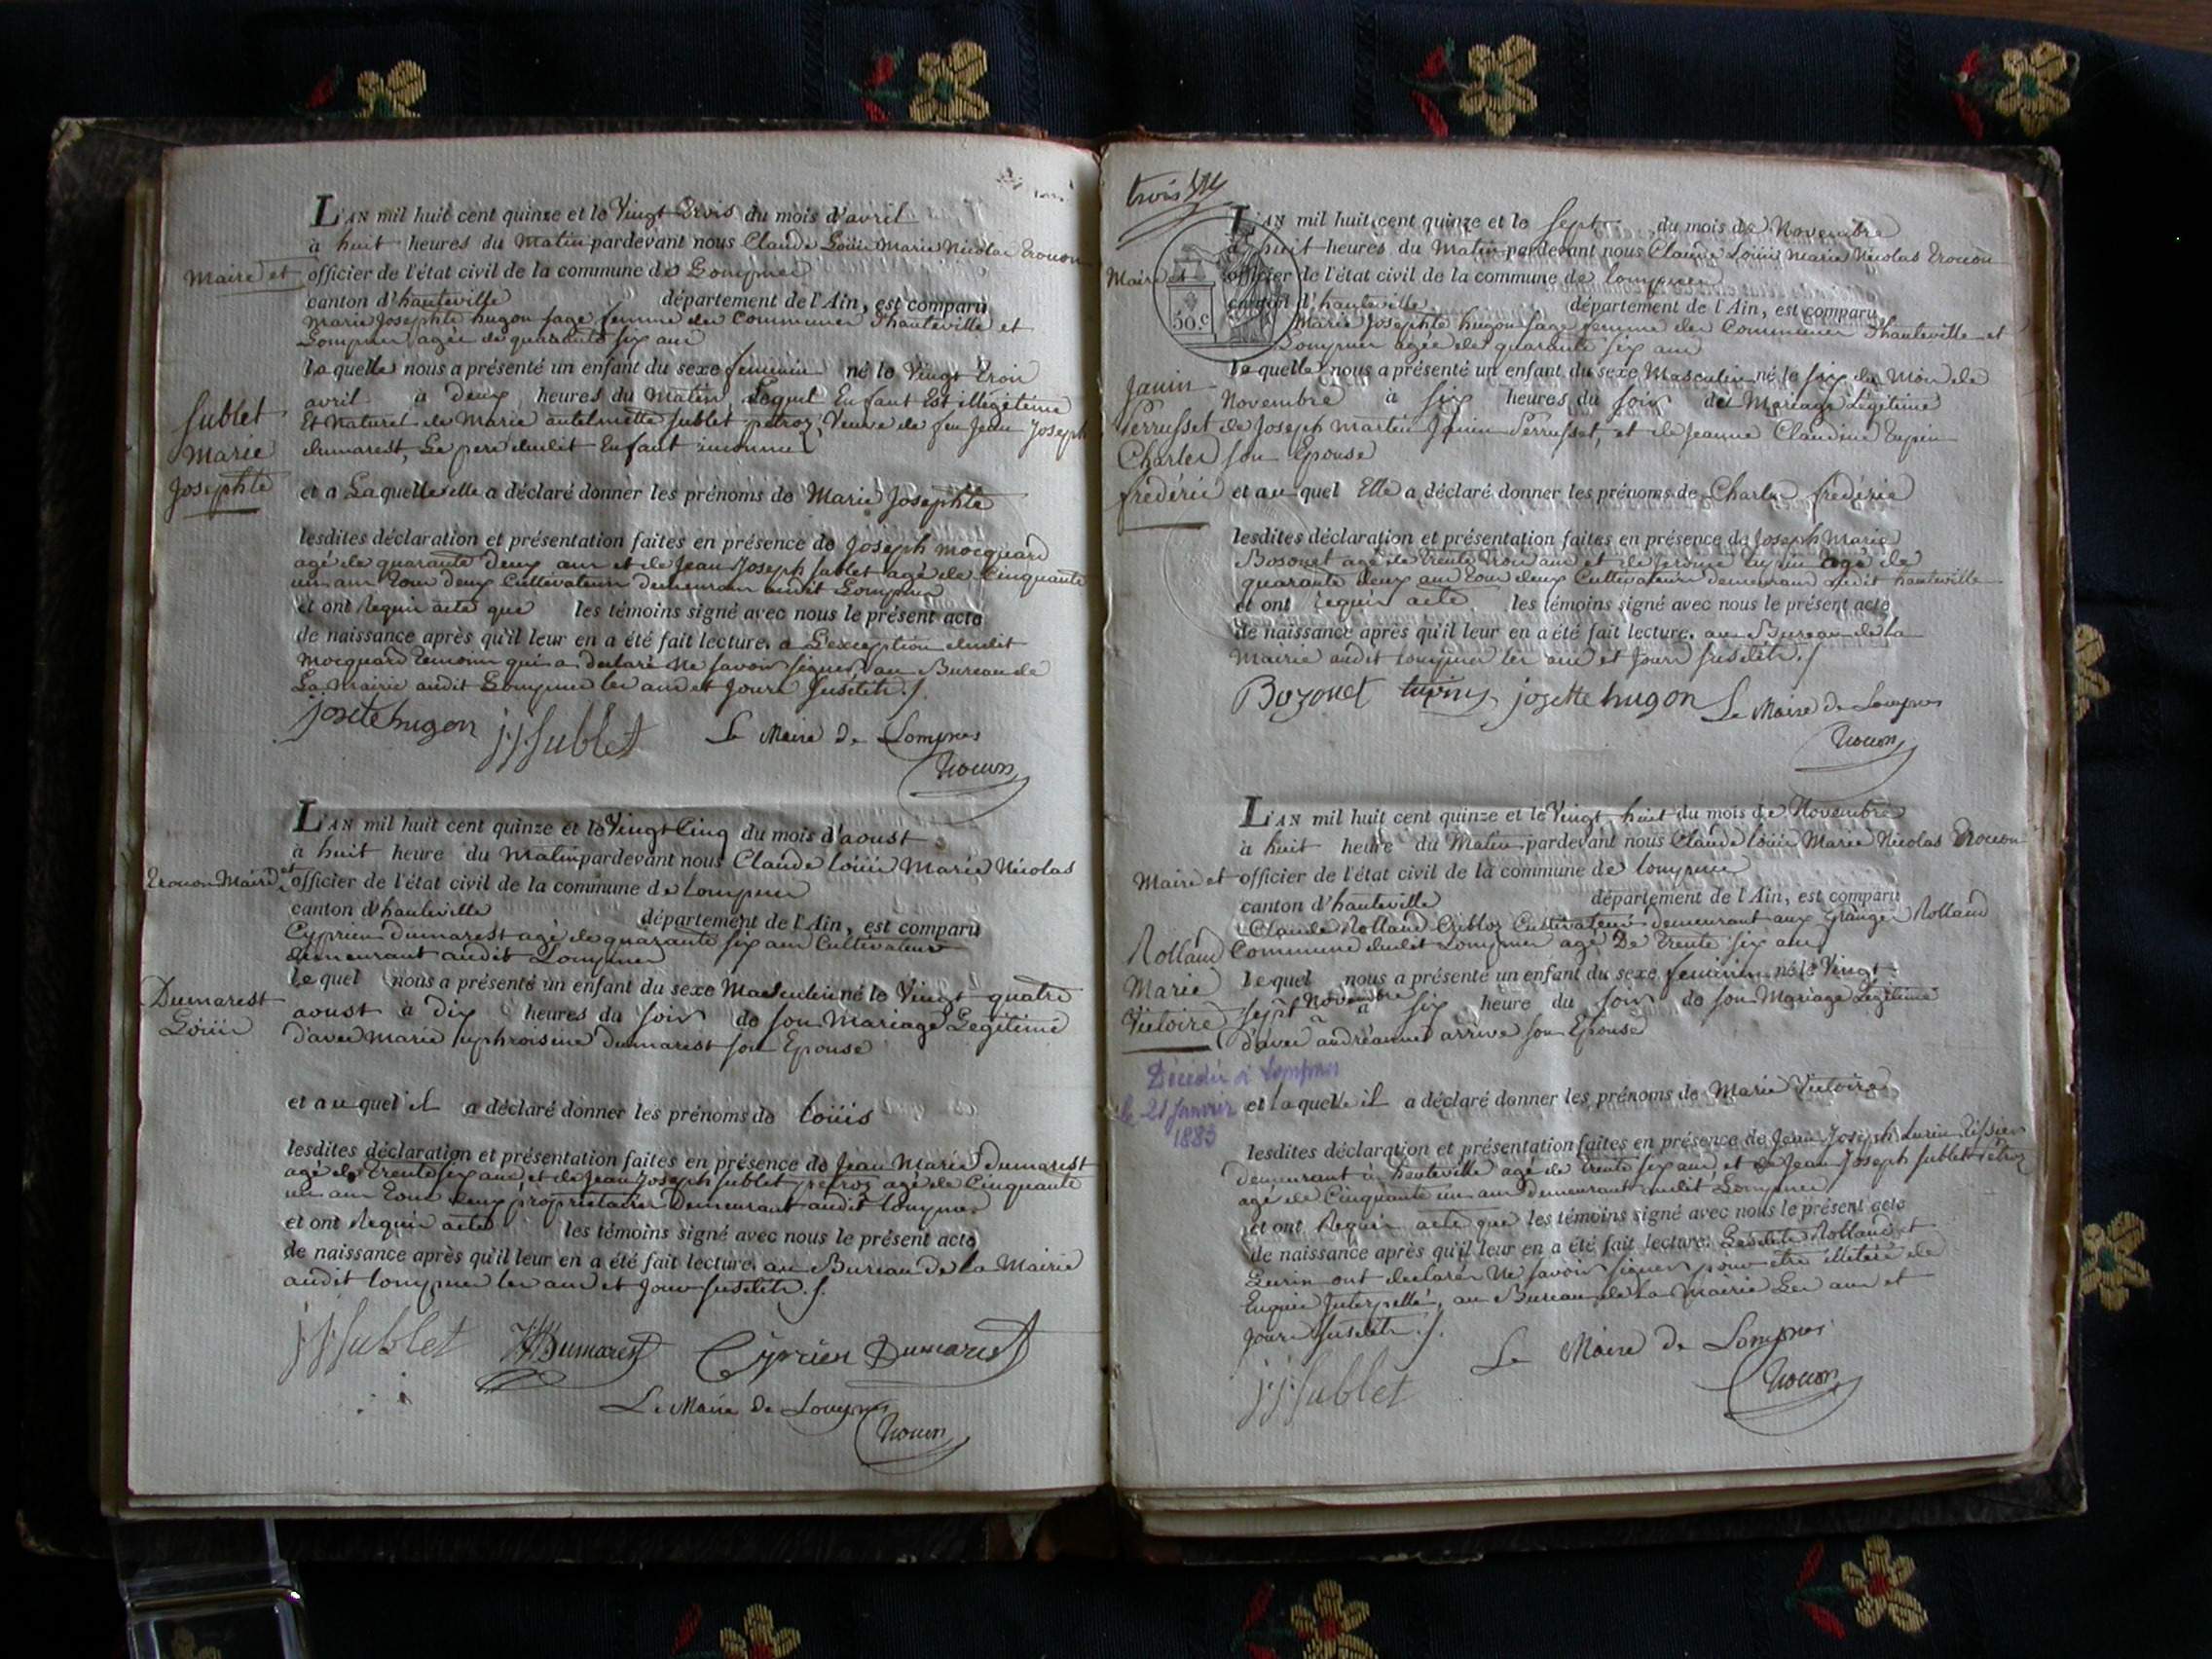 L'AN mil huit cent quinze et le Vingt trois du mois d'avril
à huit heures du Matin pardevant nous Claude Loüis Marie Nicolas Trocon
Maire et officier de l'état civil de la commune de Lompnes
canton d'hauteville département de l'Ain, est comparu
Marie Josephte hugon sage femme des Communes d'hauteville et
Lompnes agée de quarante six ans
laquelle nous a présenté un enfant du sexe feminin né le Vingt trois
avril à deux heures du Matin, lequel Enfant Est illégitime
Sublet
Et Naturel de Marie antelmette Sublet petroz, Veuve de feu Jean Joseph
Marie
dumarest, Le pere dudit Enfant inconnu
Josephte
et a Laquelle elle a déclaré donner les prénoms de Marie Josephte
lesdites déclaration et présentation faites en présence de Joseph Mocquard
agé de quarante deux ans et de Jean Joseph Sublet agé de Cinquante
un ans tous deux Cultivateurs demeurans audit Lompnes
et ont Requis acte que les témoins signé avec nous le présent acte
de naissance après qu'il leur en a été fait lecture. a L'exception dudit
Mocquard temoin qui a declaré Ne savoir signer, au Bureau de
La Mairie audit Lompnes les an et Jours Susdits./.
josette hugon j j Sublet Le Maire de Lompnes
Trocon
L'AN mil huit cent quinze et le Vingt Cinq du mois d'aoust
à huit heure du Matin pardevant nous Claude loüis Marie Nicolas
Trocon Maire et officier de l'état civil de la commune de lompnes
canton d'hauteville département de l'Ain, est comparu
Cyprien dumarest agé de quarante six ans Cultivateur
demeurant audit Lompnes
lequel nous a présenté un enfant du sexe Masculin né le Vingt quatre
Dumarest
aoust à dix heures du soir de son Mariage Legitime
Loüis
d'avec Marie Euphroisine dumarest son Epouse
et auquel il a déclaré donner les prénoms de Loüis
lesdites déclaration et présentation faites en présence de Jean Marie Dumarest
agé de trente six ans, et de Jean Joseph Sublet petroz agé de Cinquante
un ans tous deux propriétaires Demeurant audit lompnes
et ont Requis acte les témoins signé avec nous le présent acte
de naissance après qu'il leur en a été fait lecture. au Bureau de la Mairie
audit lompnes les an et Jour susdits./.
j j Sublet Dumarest Cyprien Dumarest
Le Maire de Lompnes
Trocon
trois
L'AN mil huit cent quinze et le Sept du mois de Novembre
à huit heures du Matin pardevant nous Claude Loüis Marie Nicolas Trocon
Maire et officier de l'état civil de la commune de lompnes
canton d'hauteville département de l'Ain, est comparu
50.c
Marie Josephte hugon sage femme des Communes d'hauteville et
Lompnes agée de quarante six ans
laquelle nous a présenté un enfant du sexe Masculin né le six du Mois de
Janin
Novembre à six heures du soir du Mariage Légitime
Perrusset
de Joseph Martin Janin Perrusset, et de Jeanne Claudine Tupin
Charles
son Epouse
frédéric
et auquel Elle a déclaré donner les prénoms de Charles frédéric
lesdites déclaration et présentation faites en présence de Joseph Marie
Bozonet agé de trente trois ans et de Jerome Tupin agé de
quarante deux ans tous deux Cultivateurs demeurans audit hauteville
et ont requis acte les témoins signé avec nous le présent acte
de naissance après qu'il leur en a été fait lecture. au Bureau de la
Mairie audit lompnes les an et Jours susdits./
Bozonet tupin josette hugon Le Maire de Lompnes
Trocon
L'AN mil huit cent quinze et le Vingt huit du mois de Novembre
à huit heure du Matin pardevant nous Claude loüis Marie Nicolas Trocon
Maire et officier de l'état civil de la commune de lompnes
canton d'hauteville département de l'Ain, est comparu
Claude Rolland Cribloz Cultivateur demeurant aux Granges Rolland
Rolland
Commune dudit Lompnes agé De trente six ans
Marie
lequel nous a présenté un enfant du sexe feminin né le Vingt
Victoire
sept Novembre à six heure du soir de son Mariage Légitime
d'avec andréannet arrive son Epouse
Décédée à Lompnes
le 21 Janvier
1883
et laquelle il a déclaré donner les prénoms de Marie Victoire
lesdites déclaration et présentation faites en présence de Jean Joseph Lurin Tissier
demeurant à hauteville agé de trente six ans, et de Jean Joseph Sublet Petroz
agé de Cinquante un ans demeurant audit Lompnes
et ont Requis acte que les témoins signé avec nous le présent acte
de naissance après qu'il leur en a été fait lecture. Lesdits Rolland et
Lurin ont declarés Ne savoir signer pour être illétérés de
Enquis Interpellés, au Bureau de la Mairie Les an et
Jours susdits./.
j j Sublet Le Maire de Lompnes
Trocon